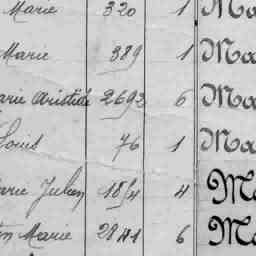 Marie 320 1 Ma
Marie 389 1 Ma
arie Aristide 2692 6 Ma
Louis 76 1 Ma
arie Julien 1814 4 Ma
Marie 2841 6 Ma